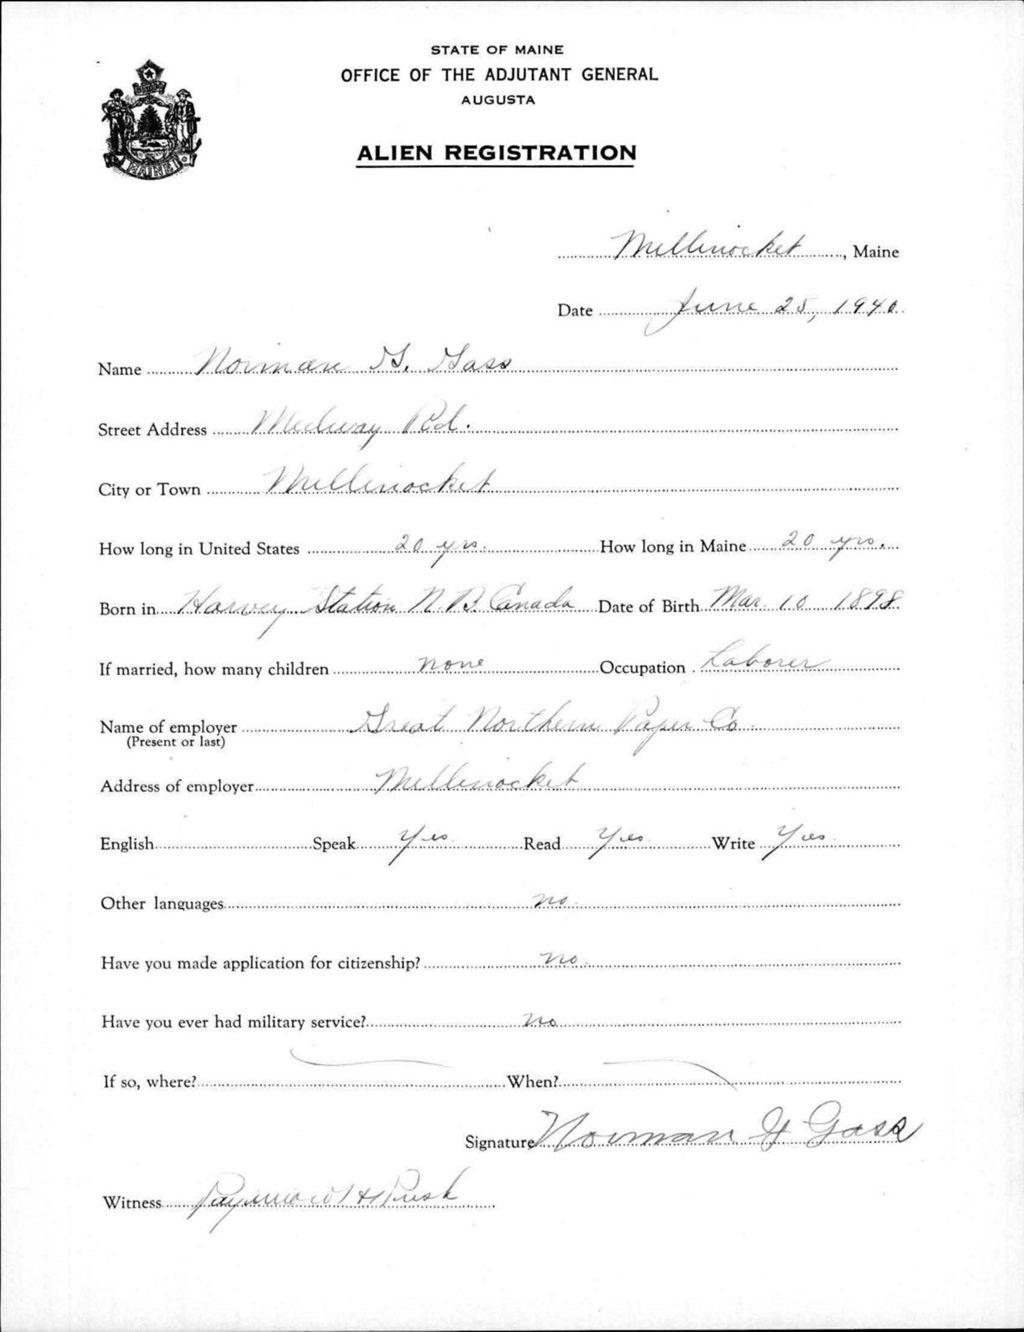 STATE OF MAINE
OFFICE OF THE ADJUTANT GENERAL
AUGUSTA
MAINE
ALIEN REGISTRATION
Millinocket, Maine
Date June 25, 1940
Name Norman G. Gass
Street Address Medway Rd.
City or Town Millinocket
How long in United States 20 yrs. How long in Maine 20 yrs.
Born in Harvey Station N.B. Canada Date of Birth Mar. 10 1898
If married, how many children none Occupation Laborer
Name of employer Great Northern Paper Co.
(Present or last)
Address of employer Millinocket
English Speak Yes Read Yes Write Yes
Other languages no
Have you made application for citizenship? no.
Have you ever had military service? no
If so, where? When?
Signature Norman G Gass
Witness Raymond H Rush